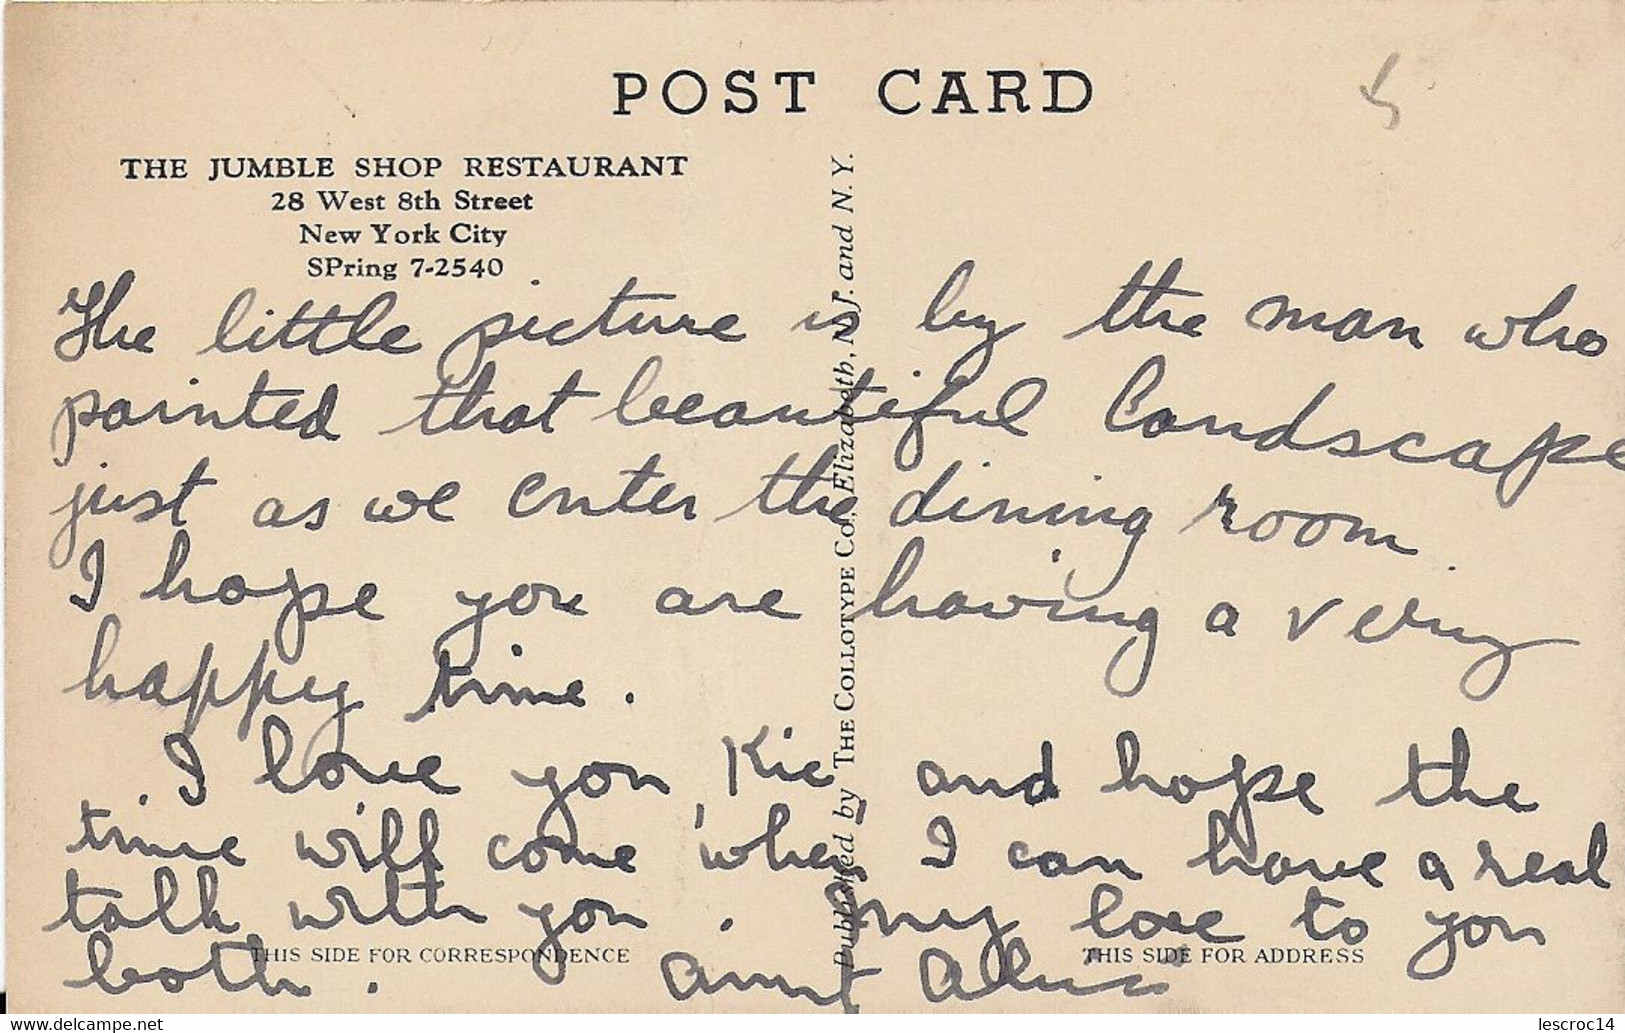 POST CARD
THE JUMBLE SHOP RESTAURANT
28 West 8th Street
New York City
SPring 7-2540
The little picture is by the man who
painted that beautiful landscape
just as we enter the dining room.
I hope you are having a very
happy time.
I love you, Kic and hope the
time will come when I can have a real
talk with you. my love to you
both. Aunt
THIS SIDE FOR CORRESPONDENCE
THIS SIDE FOR ADDRESS
Published by THE COLLOTYPE Co., Elizabeth, N.J. and N.Y.
www.delcampe.net
lescroc14